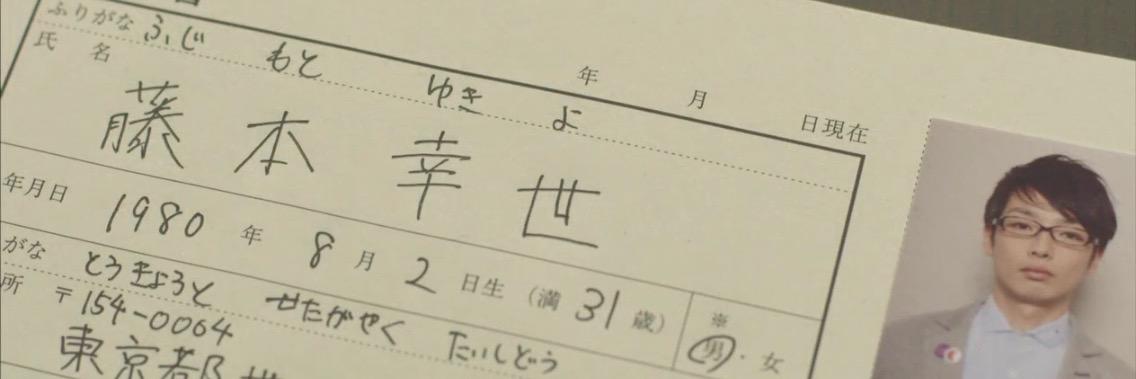 ふりがな ふじ もと ゆき よ
氏 名 藤本幸世
年 月 日現在
年月日 1980 年 8 月 2 日生 (満 31 歳) ※ 男・女
がな とうきょうと せたがやく たいしどう
所 〒154-0064
東京都